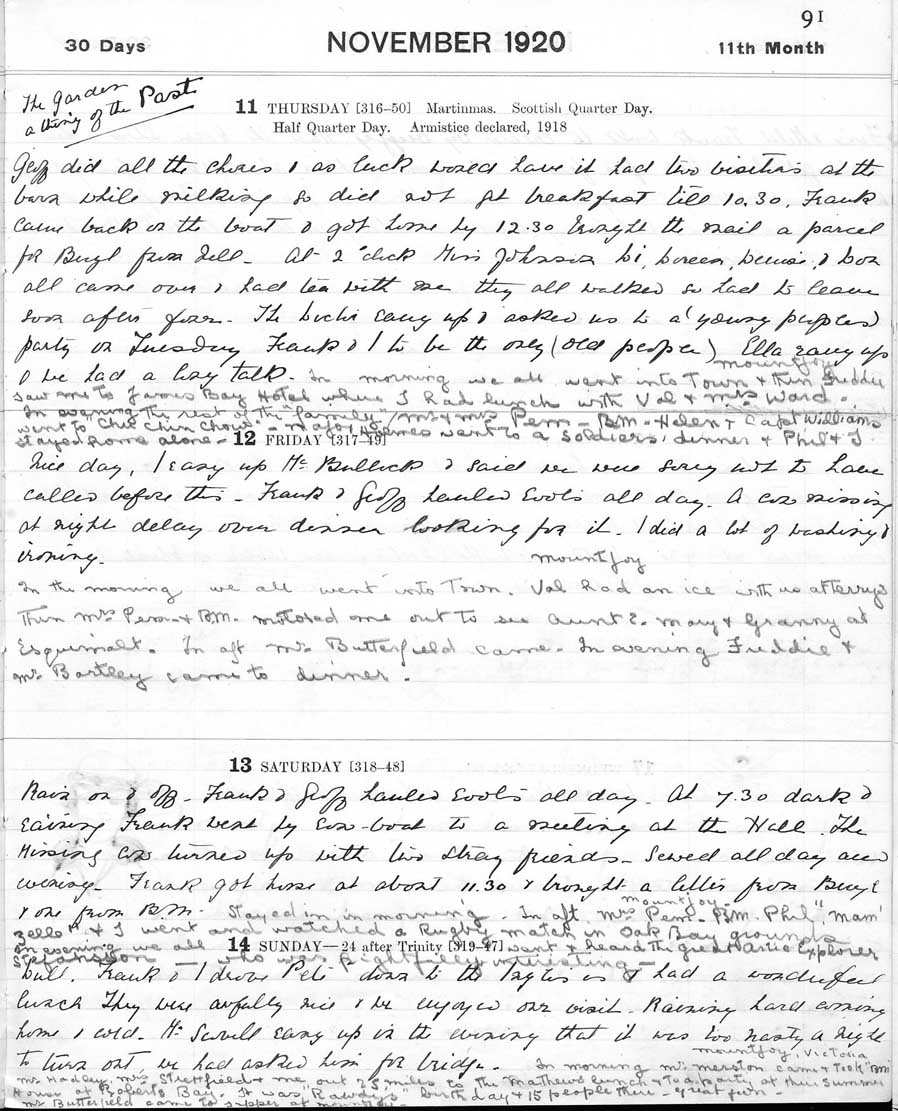 91
30 Days NOVEMBER 1920 11th Month
The Garden
a thing of the Past
11 THURSDAY [316-50] Martinmas. Scottish Quarter Day.
Half Quarter Day. Armistice declared, 1918
Geoff did all the chores & as luck would have it had two visitors at the
barn while milking so did not get breakfast till 10.30. Frank
came back on the boat & got home by 12.30 brought the mail a parcel
for Beryl from Nell. At 2 o'clock Miss Johnson Di, Doreen, Denise, & Don
all came over & had tea with me they all walked so had to leave
soon after four. The Doctor rang up & asked us to a 'young peoples'
party on Tuesday Frank & I to be the only (old people) Ella rang up
& we had a long talk. In morning we all went into Town & then Freddie
mountjoy
saw me to James Bay Hotel where I had lunch with Val & Mrs Ward.
In evening the rest of the "family" Mr & Mrs Pem - B.M. - Helen & Capt Williams
went to "Chu Chin Chow" - Major Holmes went to a Soldiers' dinner & Phil & I
stayed home alone -
12 FRIDAY [317-49]
Nice day, I rang up Mr Bullock & said we were sorry not to have
called before this - Frank & Geoff hauled roots all day. A cow missing
at night delay over dinner looking for it. I did a lot of washing &
ironing.
mountjoy
In the morning we all went into Town. Val had an ice with us at Terrys
Then Mrs Pem & B.M. motored me out to see Aunt E. Mary & Granny at
Esquimalt. In aft Mrs Butterfield came. In evening Freddie &
Mr Bartley came to dinner.
13 SATURDAY [318-48]
Rain on & off. Frank & Geoff hauled roots all day. At 7.30 dark &
raining Frank went by row-boat to a meeting at the Hall. The
missing cow turned up with two stray friends - Sewed all day and
evening. Frank got home at about 11.30 & brought a letter from Beryl
& one from B.M. Stayed in in morning. In aft Mrs Pem - B.M. Phil "Mam
mountjoy -
zelle" & I went and watched a Rugby match in Oak Bay grounds
In evening we all went & heard the great Arctic Explorer
Stefansson - who was frightfully interesting -
14 SUNDAY—24 after Trinity [319-47]
Dull. Frank & I drove Pete down to the & had a wonderful
lunch They were awfully nice & we enjoyed our visit. Raining hard coming
home & cold. Mr Scovell rang up in the evening that it was too nasty a night
to turn out, we had asked him for bridge.
mountjoy, Victoria
In morning Mr Merston came & took B.M.
Mr Hadley, Mrs Strettfield & me, out 25 miles to the Mathews lunch & Tea party at their Summer
House at Roberts Bay. It was birthday & 15 people there - great fun.
Mr Butterfield came to supper at mountjoy.